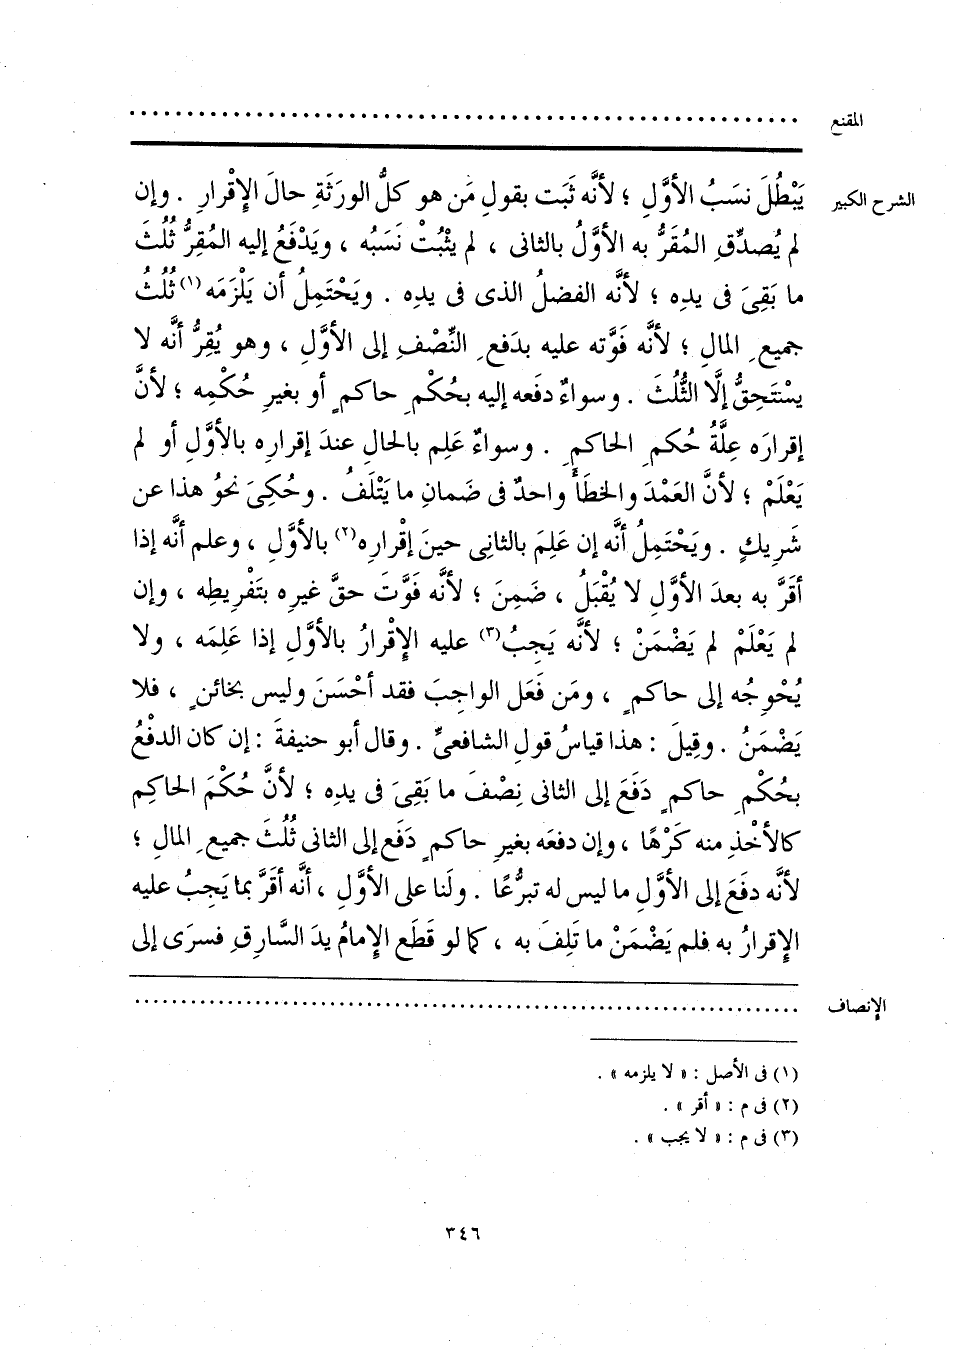 المقنع ..........................................................
الشرح الكبير يَبْطُلَ نسَبُ الأوَّلِ ؛ لأنَّه ثَبَت بقولِ مَن هو كلُّ الورَثَةِ حالَ الإِقْرارِ . وإن
لم يُصدِّقِ المُقَرُّ به الأوَّلُ بالثانى ، لم يثْبُتْ نَسَبُه ، ويَدْفَعُ إليه المُقِرُّ ثُلُثَ
ما بَقِىَ فى يدِه ؛ لأنَّه الفضلُ الذى فى يدِه . ويَحْتَمِلُ أن يَلْزَمَه(١) ثُلُثُ
جميعِ المالِ ؛ لأنَّه فَوَّته عليه بدَفعِ النِّصْفِ إلى الأوَّلِ ، وهو يُقِرُّ أنَّه لا
يسْتَحِقُّ إلَّا الثُّلُثَ . وسواءٌ دفَعه إليه بحُكْمِ حاكمٍ أو بغيرِ حُكْمِه ؛ لأنَّ
إقرارَه عِلَّةُ حُكمِ الحاكمِ . وسواءٌ عَلِم بالحالِ عندَ إقرارِه بالأوَّلِ أو لم
يَعْلَمْ ؛ لأنَّ العَمْدَ والخطَأَ واحدٌ فى ضَمانِ ما يَتْلَفُ . وحُكِىَ نحوُ هذا عن
شَرِيكٍ . ويَحْتَمِلُ أنَّه إن عَلِمَ بالثانِى حينَ إقْرارِه(٢) بالأوَّلِ ، وعلم أنَّه إذا
أقَرَّ به بعدَ الأوَّلِ لا يُقْبَلُ ، ضَمِنَ ؛ لأنَّه فَوَّتَ حقَّ غيرِه بتَفْرِيطِه ، وإن
لم يَعْلَمْ لم يَضْمَنْ ؛ لأنَّه يَجِبُ(٣) عليه الإِقْرارُ بالأوَّلِ إذا عَلِمَه ، ولا
يُحْوِجُه إلى حاكمٍ ، ومَن فَعَل الواجِبَ فقد أحْسَنَ وليس بخائنٍ ، فلا
يَضْمَنُ . وقِيلَ : هذا قياسُ قولِ الشافعىِّ . وقال أبو حنيفةَ : إن كان الدفْعُ
بحُكْمِ حاكمٍ دَفَعَ إلى الثانى نِصْفَ ما بَقِىَ فى يدِه ؛ لأنَّ حُكْمَ الحاكِمِ
كالأخْذِ منه كَرْهًا ، وإن دفعَه بغيرِ حاكمٍ دَفَع إلى الثانى ثُلُثَ جميعِ المالِ ؛
لأنَّه دفَعَ إلى الأوَّلِ ما ليس له تبرُّعًا . ولَنا على الأوَّلِ ، أنَّه أقَرَّ بما يَجِبُ عليه
الإِقرارُ به فلم يَضْمَنْ ما تَلِفَ به ، كما لو قَطَع الإِمامُ يدَ السَّارِقِ فسرَى إلى
الإنصاف ..........................................................
(١) فى الأصل : « لا يلزمه » .
(٢) فى م : « أقر » .
(٣) فى م : « لا يجب » .
٣٤٦